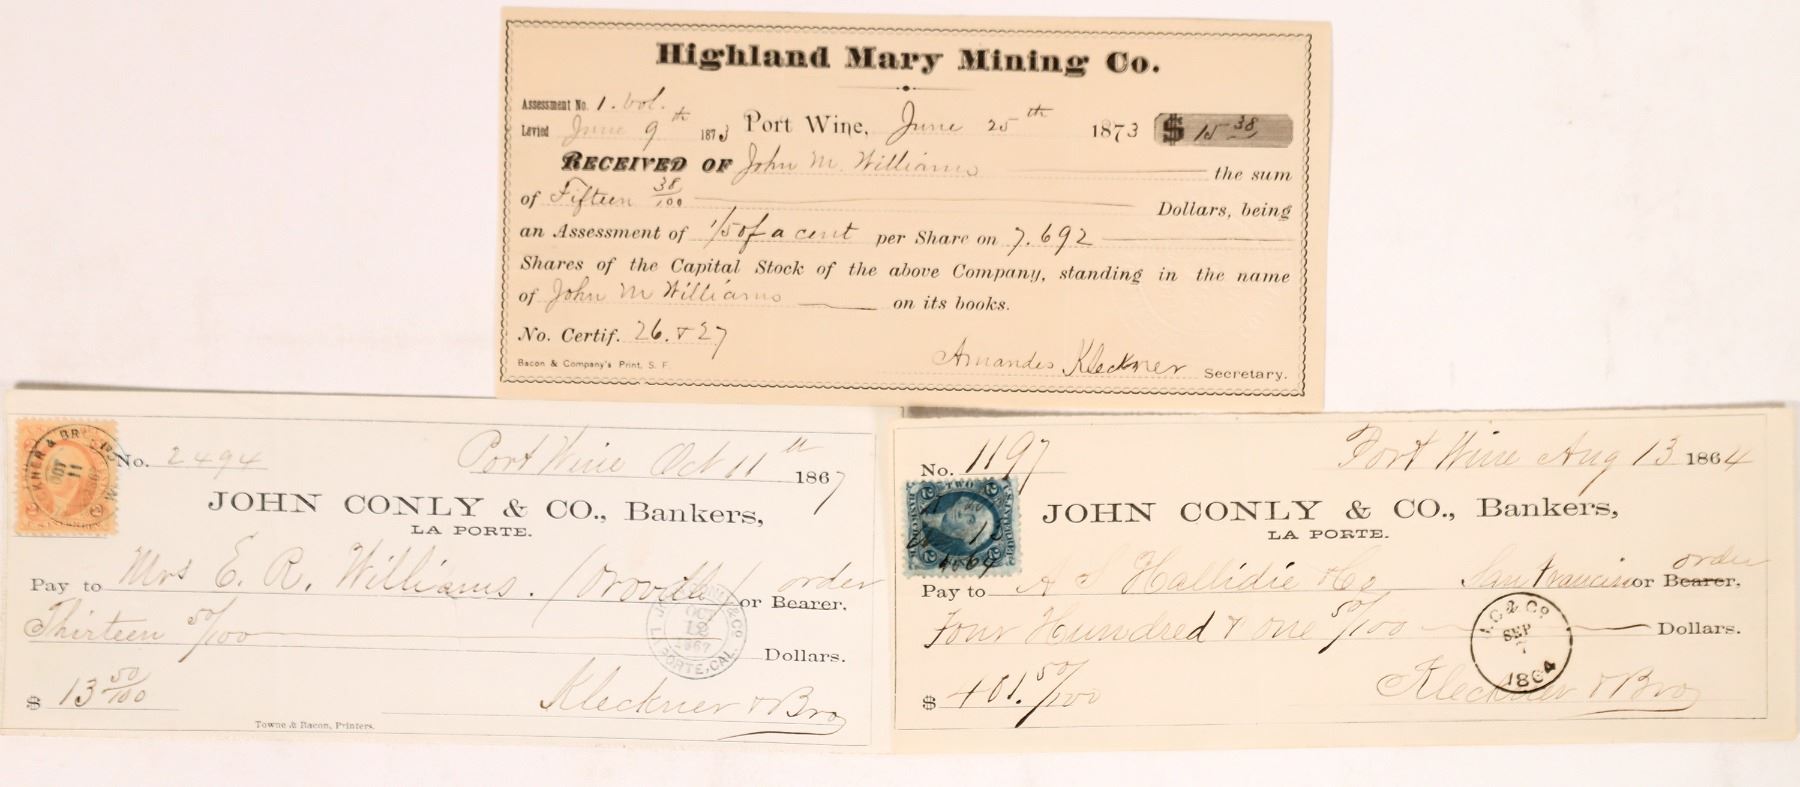 Highland Mary Mining Co.
Assessment No. 1. vol.
Levied June 9th 1873 Port Wine, June 25th 1873 $ 15 38
RECEIVED OF John M. Williams the sum
of Fifteen 38/100 Dollars, being
an Assessment of 1/5 of a cent per Share on 7.692
Shares of the Capital Stock of the above Company, standing in the name
of John M Williams on its books.
No. Certif. 26. & 27
Bacon & Company's Print. S. F.
Amandes Kleckner Secretary.
No. 2494 Port Wine Oct 11th 1867
KNER & BR
OCT
11
JOHN CONLY & CO., Bankers,
LA PORTE.
Pay to Mrs E. R. Williams. (Oroville) or Bearer. order
Thirteen 50/100 Dollars.
OCT
12
1867
LA PORTE, CAL.
$ 13 50/100 Kleckner & Bro
Towne & Bacon, Printers.
No. 1197 Port Wine Aug 13 1864
TWO
JOHN CONLY & CO., Bankers,
LA PORTE.
Pay to A S Hallidie & Co San Francisco or Bearer, order
Four Hundred & one 50/100 Dollars.
J. C. & Co.
SEP
7
1864
$ 401. 50/100 Kleckner & Bro